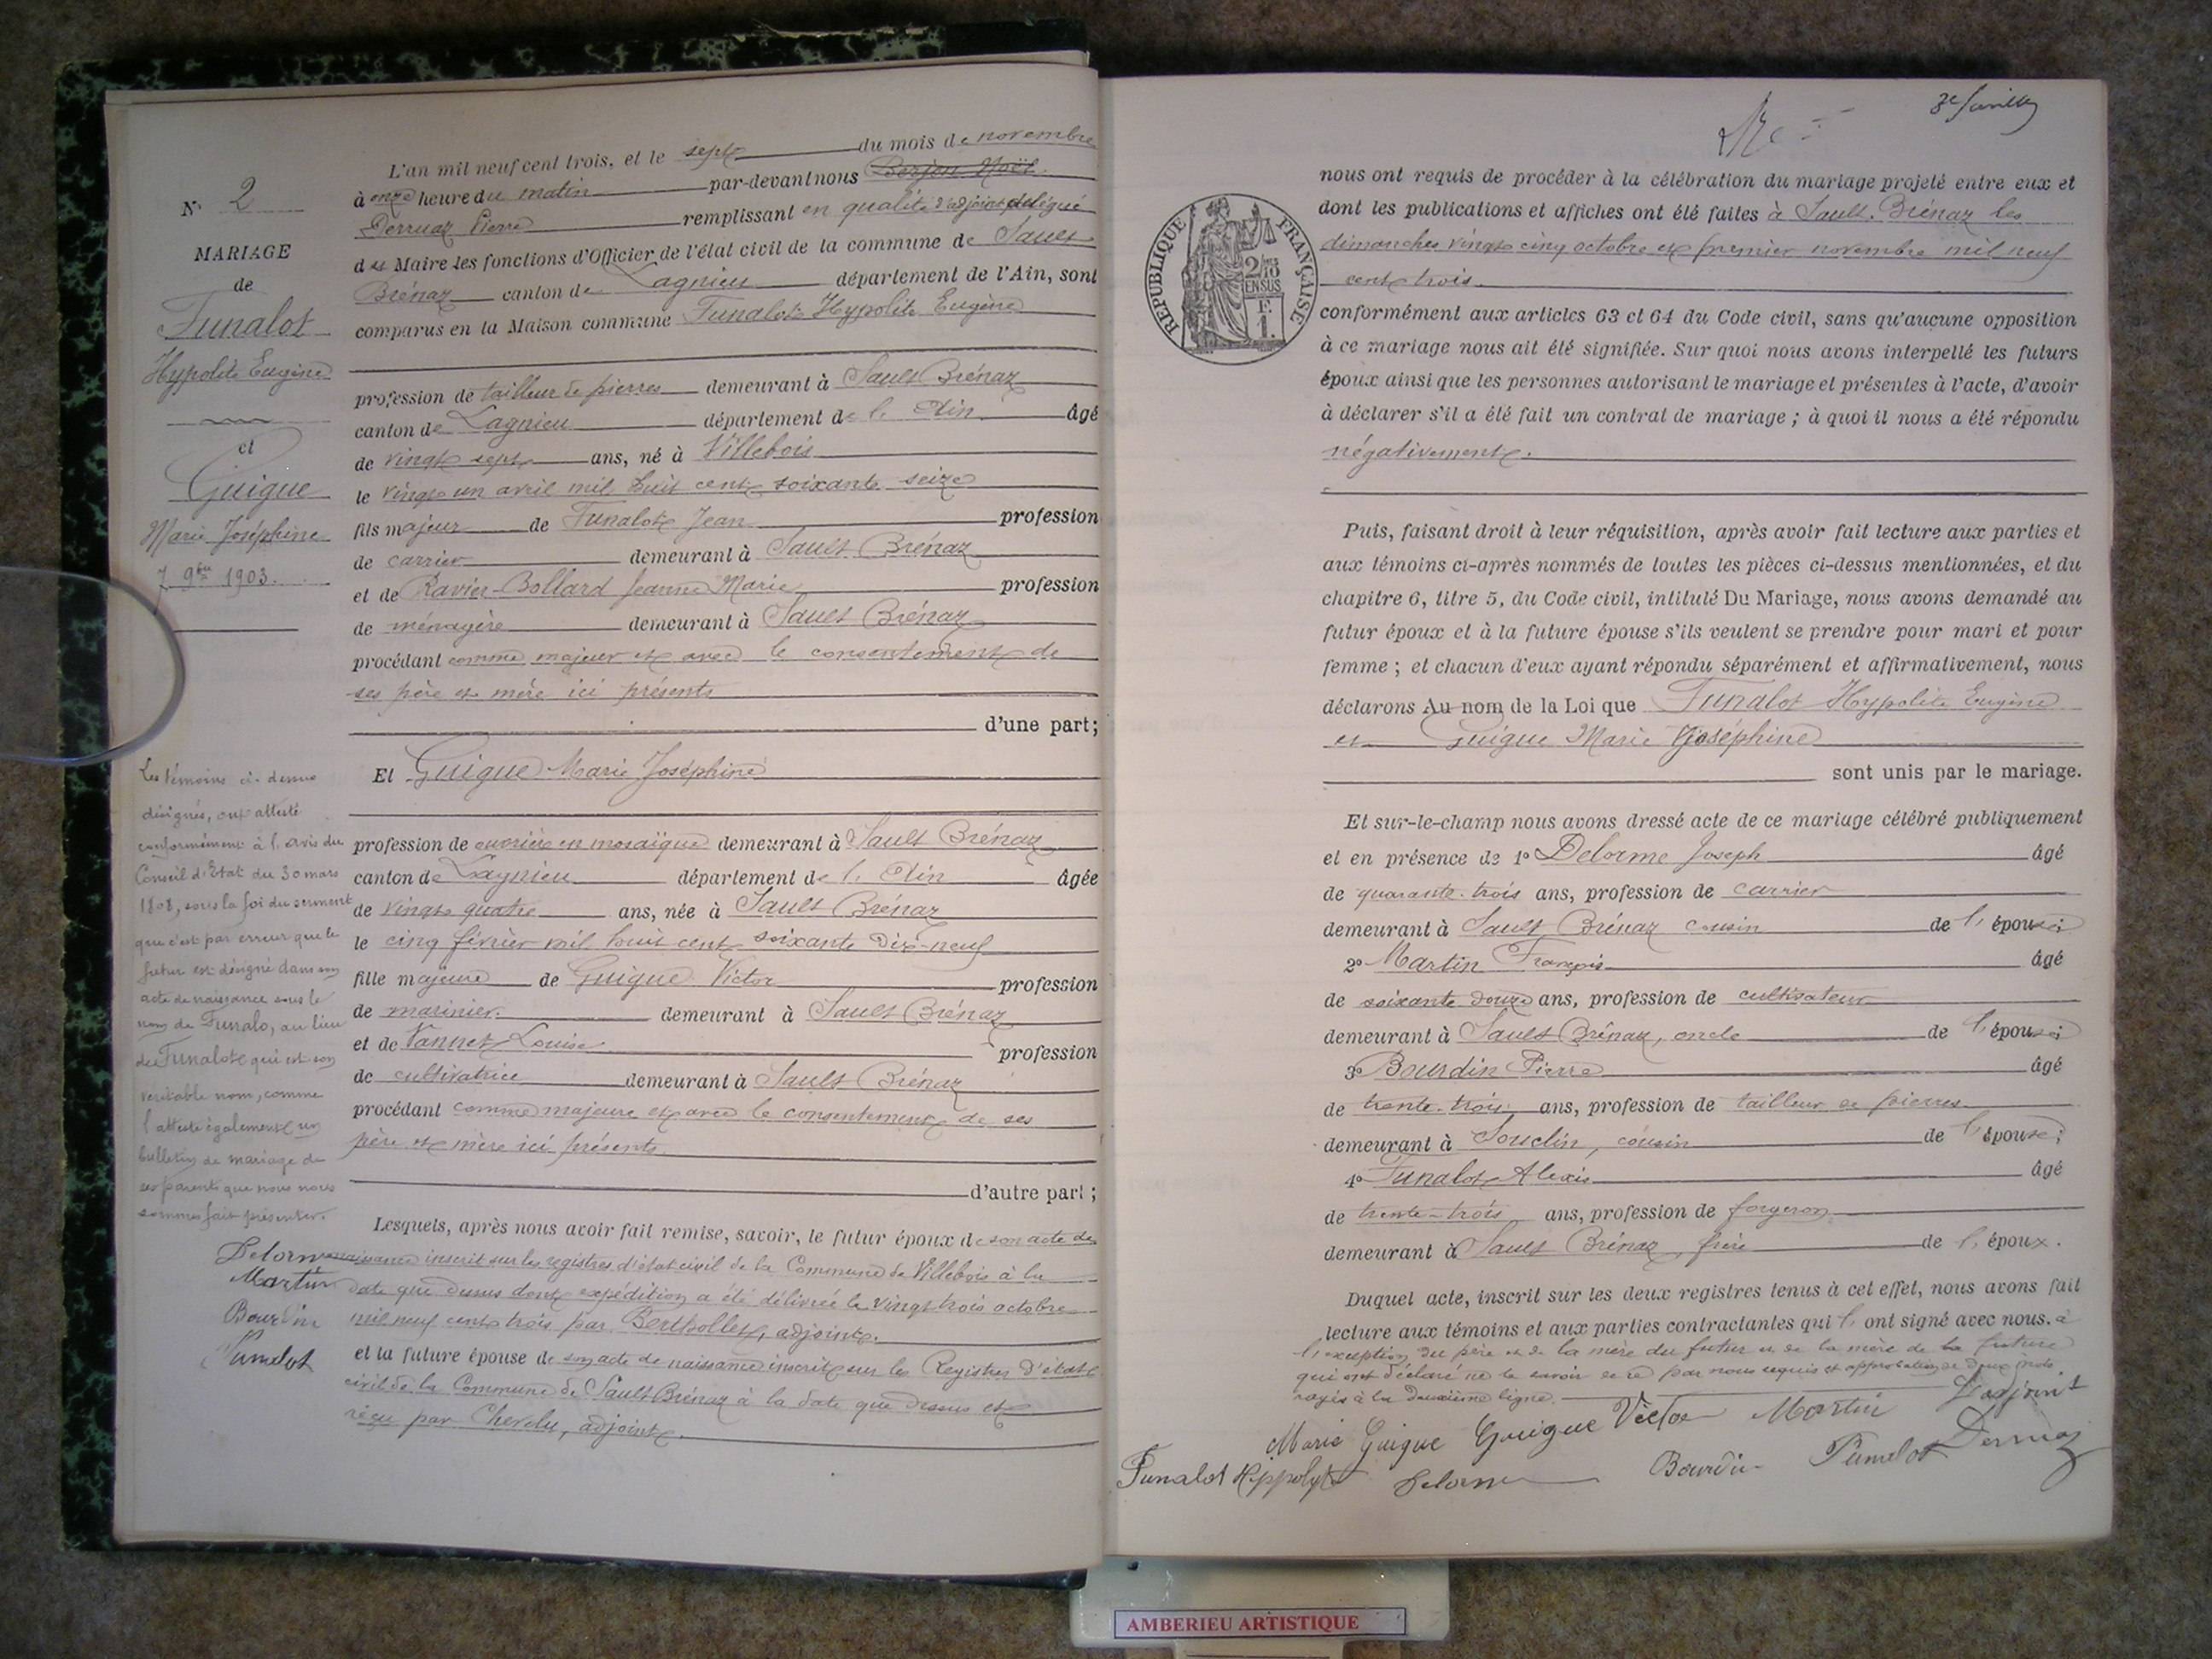 N° 2
MARIAGE
de
Funalot
Hypolite Eugène
et
Guigue
Marie Joséphine
7 9bre 1903.
Les témoins ci-dessus
désignés, ont attesté
conformément à l'avis du
Conseil d'Etat du 30 mars
1808, sous la foi du serment
que c'est par erreur que le
futur est désigné dans son
acte de naissance sous le
nom de Funalo, au lieu
de Funalot qui est son
véritable nom, comme
l'atteste également un
bulletin de mariage de
ses parents que nous nous
sommes fait présenter.
Delorme
Martin
Bourdin
Funalot
L'an mil neuf cent trois, et le sept du mois de novembre
à onze heure du matin par-devant nous Borjon Noël
Derruaz Pierre remplissant en qualité d'adjoint délégué
du Maire les fonctions d'Officier de l'état civil de la commune de Sault
Brénaz canton de Lagnieu département de l'Ain, sont
comparus en la Maison commune Funalot Hypolite Eugène
profession de tailleur de pierres demeurant à Sault Brénaz
canton de Lagnieu département de l'Ain âgé
de vingt sept ans, né à Villebois
le vingt un avril mil huit cent soixante seize
fils majeur de Funalot Jean profession
de carrier demeurant à Sault Brénaz
et de Ravier-Bollard Jeanne Marie profession
de ménagère demeurant à Sault Brénaz
procédant comme majeur et avec le consentement de
ses père et mère ici présents
d'une part;
Et Guigue Marie Joséphine
profession de ouvrière en mosaïque demeurant à Sault Brénaz
canton de Lagnieu département de l'Ain âgée
de vingt quatre ans, née à Sault Brénaz
le cinq février mil huit cent soixante dix-neuf
fille majeure de Guigue Victor profession
de marinier demeurant à Sault Brénaz
et de Vannet Louise profession
de cultivatrice demeurant à Sault Brénaz
procédant comme majeure et avec le consentement de ses
père et mère ici présents
d'autre part;
Lesquels, après nous avoir fait remise, savoir, le futur époux de son acte de
naissance inscrit sur les registres d'état civil de la Commune de Villebois à la
date que dessus dont expédition a été délivrée le vingt trois octobre
mil neuf cent trois par Berthollet, adjoint.
et la future épouse de son acte de naissance inscrit sur les Registres d'état
civil de la Commune de Sault Brénaz à la date que dessus et
reçu par Chevelu, adjoint.
REPUBLIQUE FRANÇAISE
2/10 ENSUS
F.
1.
nous ont requis de procéder à la célébration du mariage projeté entre eux et
dont les publications et affiches ont été faites à Sault-Brénaz les
dimanches vingt cinq octobre et premier novembre mil neuf
cent trois.
conformément aux articles 63 et 64 du Code civil, sans qu'aucune opposition
à ce mariage nous ait été signifiée. Sur quoi nous avons interpellé les futurs
époux ainsi que les personnes autorisant le mariage et présentes à l'acte, d'avoir
à déclarer s'il a été fait un contrat de mariage ; à quoi il nous a été répondu
négativement.
Puis, faisant droit à leur réquisition, après avoir fait lecture aux parties et
aux témoins ci-après nommés de toutes les pièces ci-dessus mentionnées, et du
chapitre 6, titre 5, du Code civil, intitulé Du Mariage, nous avons demandé au
futur époux et à la future épouse s'ils veulent se prendre pour mari et pour
femme ; et chacun d'eux ayant répondu séparément et affirmativement, nous
déclarons Au nom de la Loi que Funalot Hypolite Eugène
et Guigue Marie Joséphine
sont unis par le mariage.
Et sur-le-champ nous avons dressé acte de ce mariage célébré publiquement
et en présence de 1° Delorme Joseph âgé
de quarante-trois ans, profession de carrier
demeurant à Sault Brénaz cousin de l'épouse;
2° Martin François âgé
de soixante douze ans, profession de cultivateur
demeurant à Sault Brénaz, oncle de l'épouse;
3° Bourdin Pierre âgé
de trente-trois ans, profession de tailleur de pierres
demeurant à Souclin, cousin de l'épouse;
4° Funalot Alexis âgé
de trente-trois ans, profession de forgeron
demeurant à Sault Brénaz, frère de l'époux.
Duquel acte, inscrit sur les deux registres tenus à cet effet, nous avons fait
lecture aux témoins et aux parties contractantes qui l'ont signé avec nous. à
l'exception du père et de la mère du futur et de la mère de la future
qui ont déclaré ne le savoir de ce par nous requis et approbation de deux mots
rayés à la deuxième ligne.
Marie Guigue Guigue Victor Martin L'adjoint
Funalot Hippolyte Delorme Bourdin Funalot Derruaz
AMBERIEU ARTISTIQUE